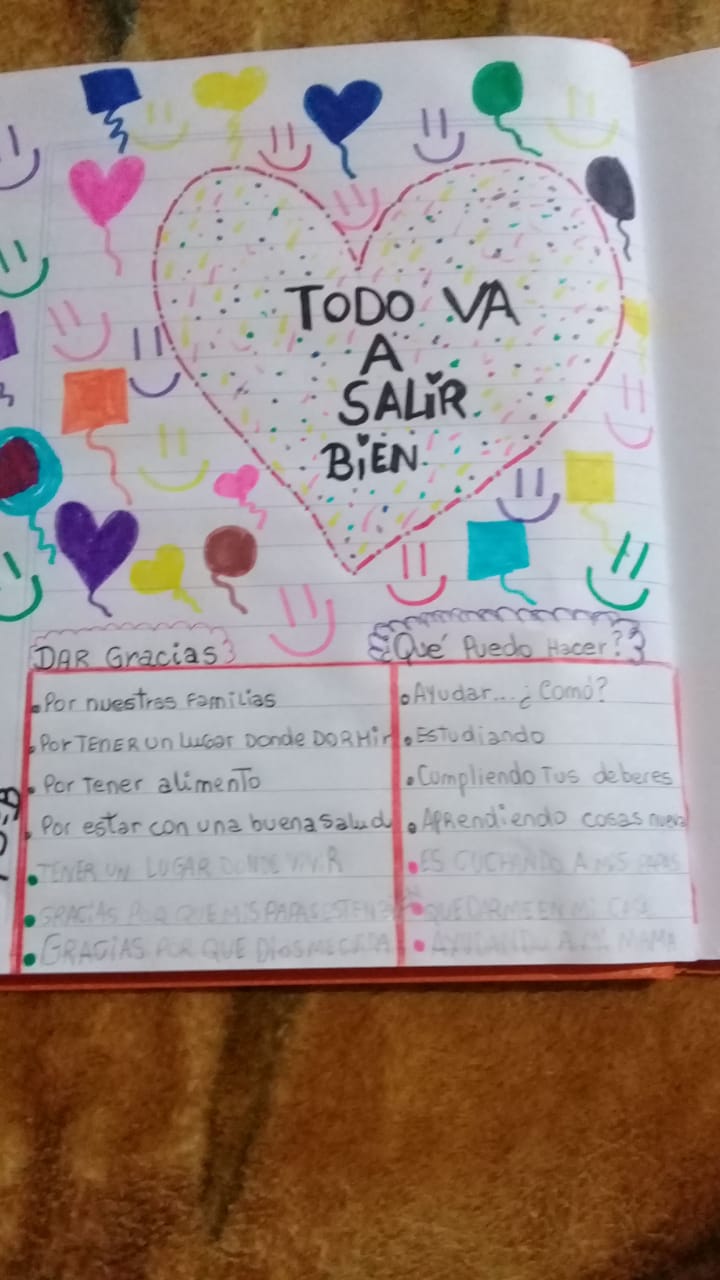 TODO VA
A
SALIR
BIEN.
DAR Gracias
Por nuestras Familias
Por TENER un Lugar Donde DORMir
Por Tener alimento
Por estar con una buena Salud
TENER UN LUGAR DONDE VIVIR
GRACIAS POR QUE MIS PAPAS ESTEN
GRACIAS POR QUE DIOS ME
¿Qué Puedo Hacer?
Ayudar... ¿Comó?
Estudiando
Cumpliendo Tus deberes
Aprendiendo cosas nueva
ESCUCHANDO A MIS PAPAS
QUEDARME EN MI CASA
AYUDANDO A MI MAMA